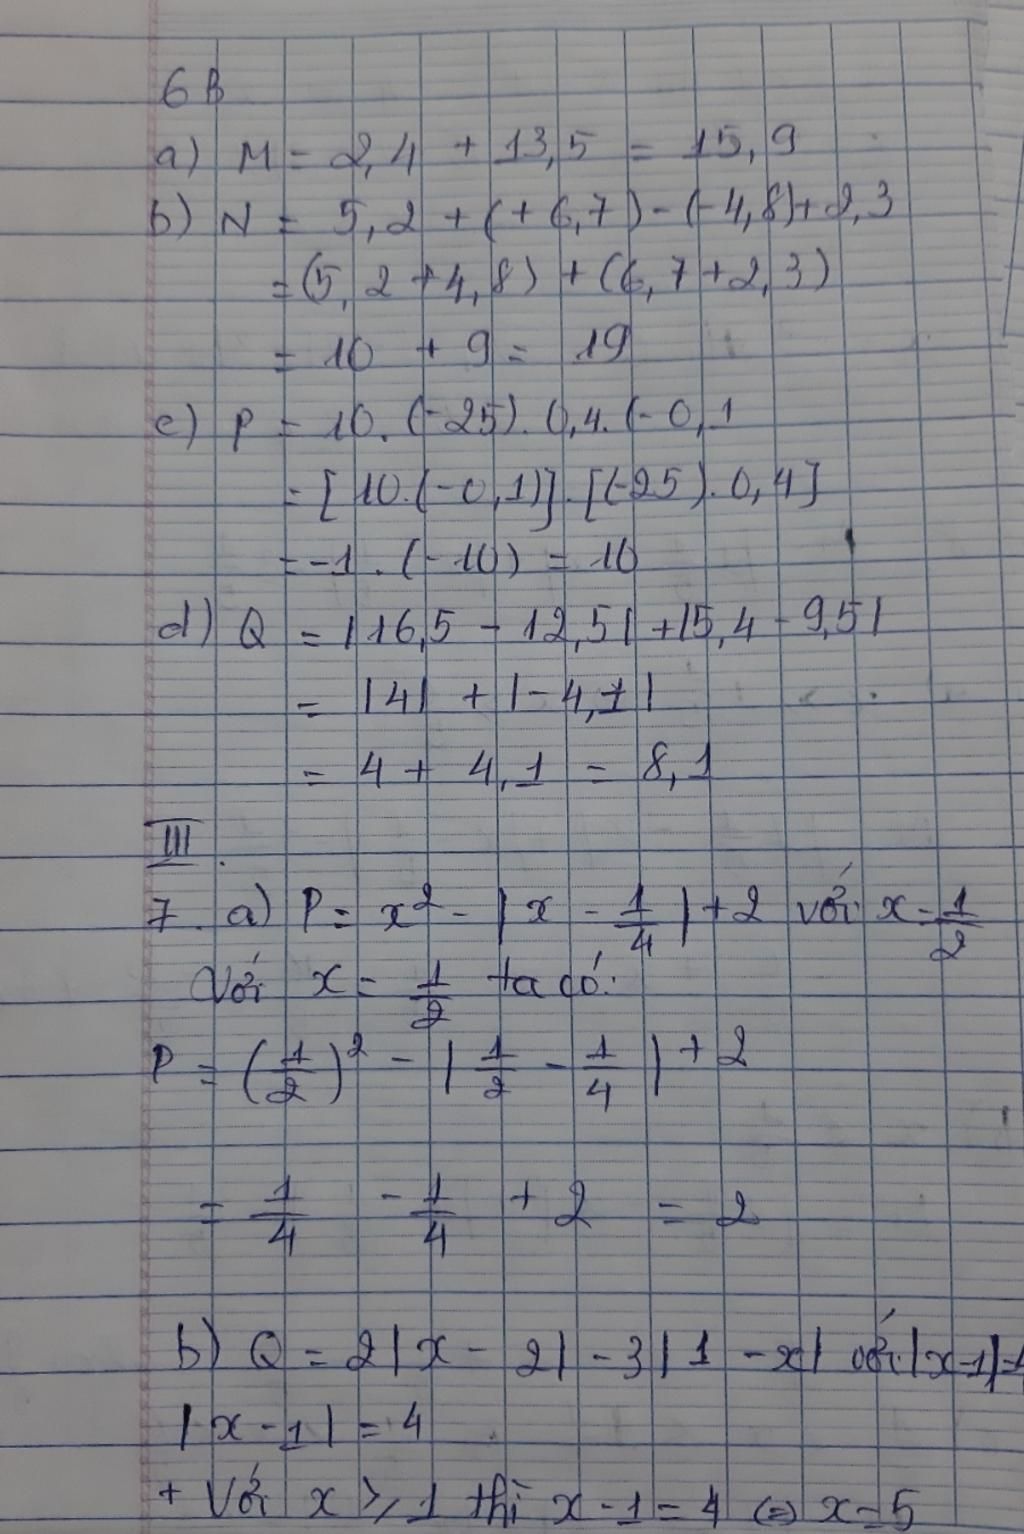 6B
a) M = 2,4 + 13,5 = 15,9
b) N = 5,2 + (+6,7) - (-4,8) + 2,3
= (5,2 + 4,8) + (6,7 + 2,3)
= 10 + 9 = 19
c) P = 10. (-25). 0,4. (-0,1
= [10.(-0,1)]. [(-25). 0,4]
= -1. (-10) = 10
d) Q = |16,5 - 12,5| + |5,4 - 9,5|
= |4| + |-4,1|
= 4 + 4,1 = 8,1
III.
7. a) P = x² - |x - 1/4| + 2 với x = 1/2
Với x = 1/2 ta có:
P = (1/2)² - |1/2 - 1/4| + 2
= 1/4 - 1/4 + 2 = 2
b) Q = 2|x - 2| - 3|1 - x| với |x-1|=4
|x - 1| = 4
+ Với x ⩾ 1 thì x - 1 = 4 (=) x = 5